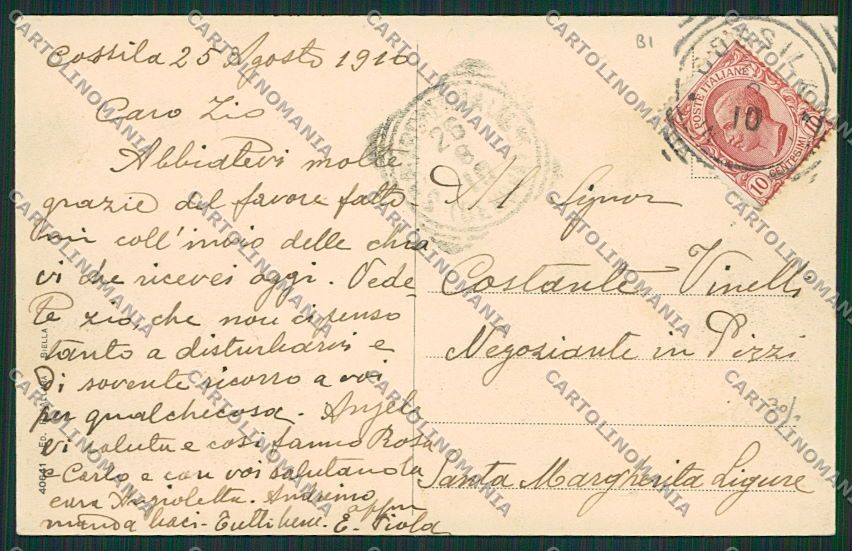 Cossila 25 Agosto 1910
Caro Zio
Abbiatevi molte
grazie del favore fatto
mi coll'invio delle chia
vi che ricevei oggi. Vede-
te zio, che non ci penso
tanto a disturbarvi e
di sovente ricorro a voi
per qualchecosa. Angelo
vi saluta e così fanno Rosa
e Carlo e con voi salutano la
cara Angioletta. Andreino
manda baci. Tutti bene. E. Viola
B1
POSTE ITALIANE
CENTESIMI 10
10
Signor
Costante Vinelli
Negoziante in Pizzi
Santa Margherita Ligure
40641
BIELLA
CARTOLINOMANIA